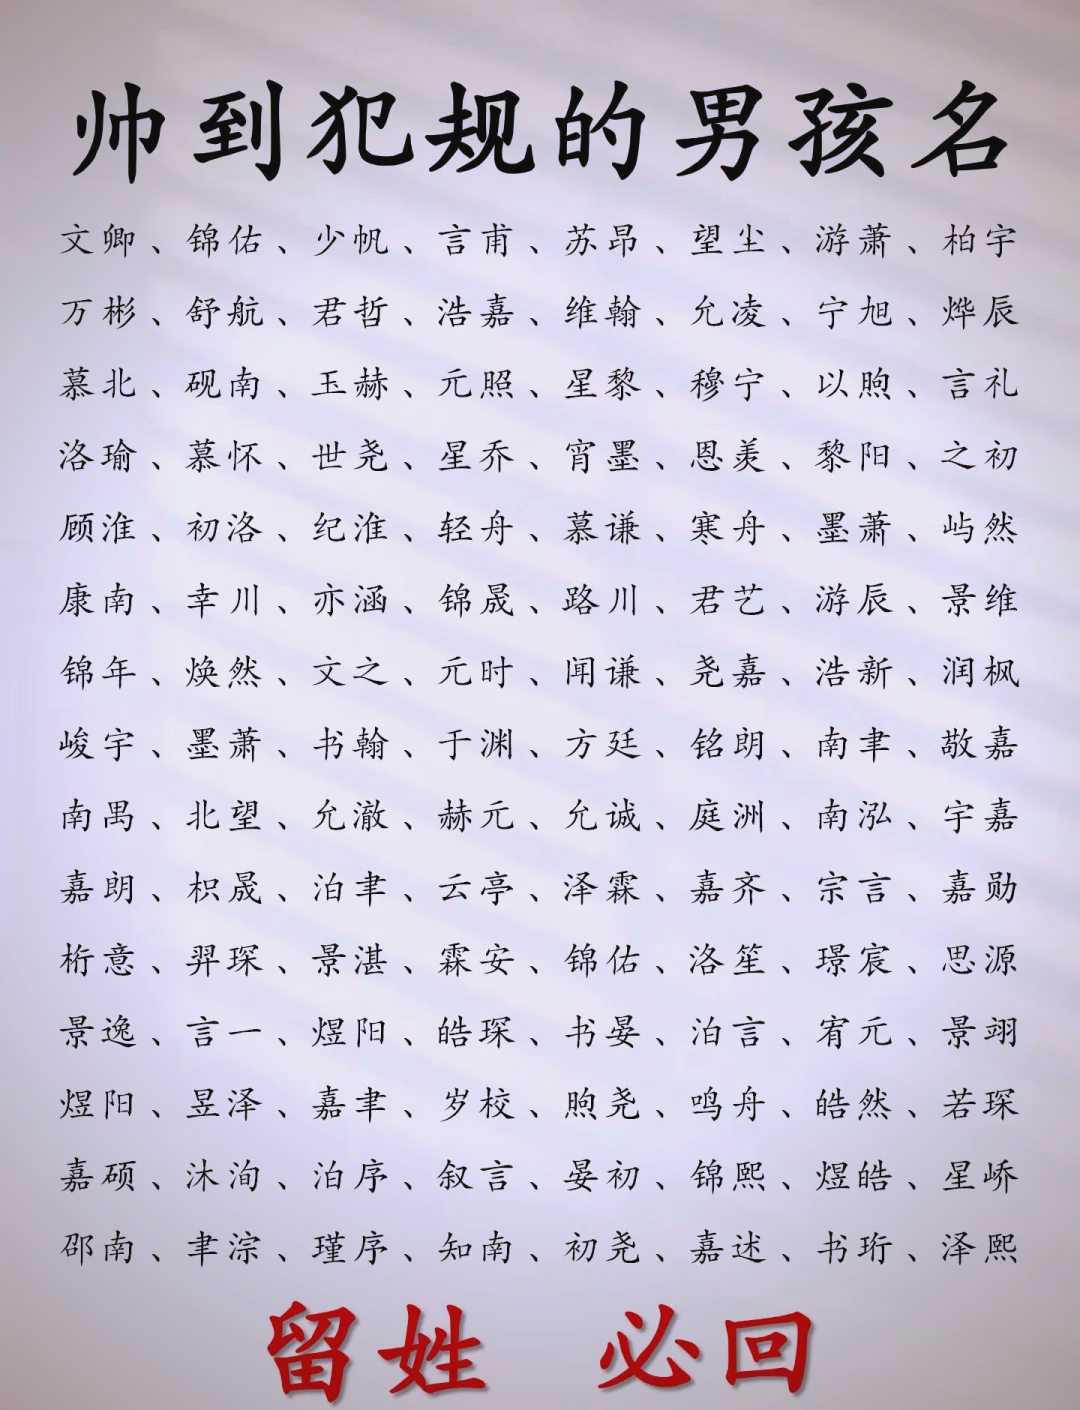 帅到犯规的男孩名
文卿、锦佑、少帆、言甫、苏昂、望尘、游萧、柏宇
万彬、舒航、君哲、浩嘉、维翰、允凌、宁旭、烨辰
慕北、砚南、玉赫、元照、星黎、穆宁、以煦、言礼
洛瑜、慕怀、世尧、星乔、宵墨、恩羙、黎阳、之初
顾淮、初洛、纪淮、轻舟、慕谦、寒舟、墨萧、屿然
康南、幸川、亦涵、锦晟、路川、君艺、游辰、景维
锦年、焕然、文之、元时、闻谦、尧嘉、浩新、润枫
峻宇、墨萧、书翰、于渊、方廷、铭朗、南聿、敬嘉
南禺、北望、允澈、赫元、允诚、庭洲、南泓、宇嘉
嘉朗、枳晟、泊聿、云亭、泽霖、嘉齐、宗言、嘉勋
桁意、羿琛、景湛、霖安、锦佑、洛笙、璟宸、思源
景逸、言一、煜阳、皓琛、书晏、泊言、宥元、景翊
煜阳、昱泽、嘉聿、岁校、煦尧、鸣舟、皓然、若琛
嘉硕、沐洵、泊序、叙言、晏初、锦熙、煜皓、星峤
邵南、聿淙、瑾序、知南、初尧、嘉述、书珩、泽熙
留姓 必回